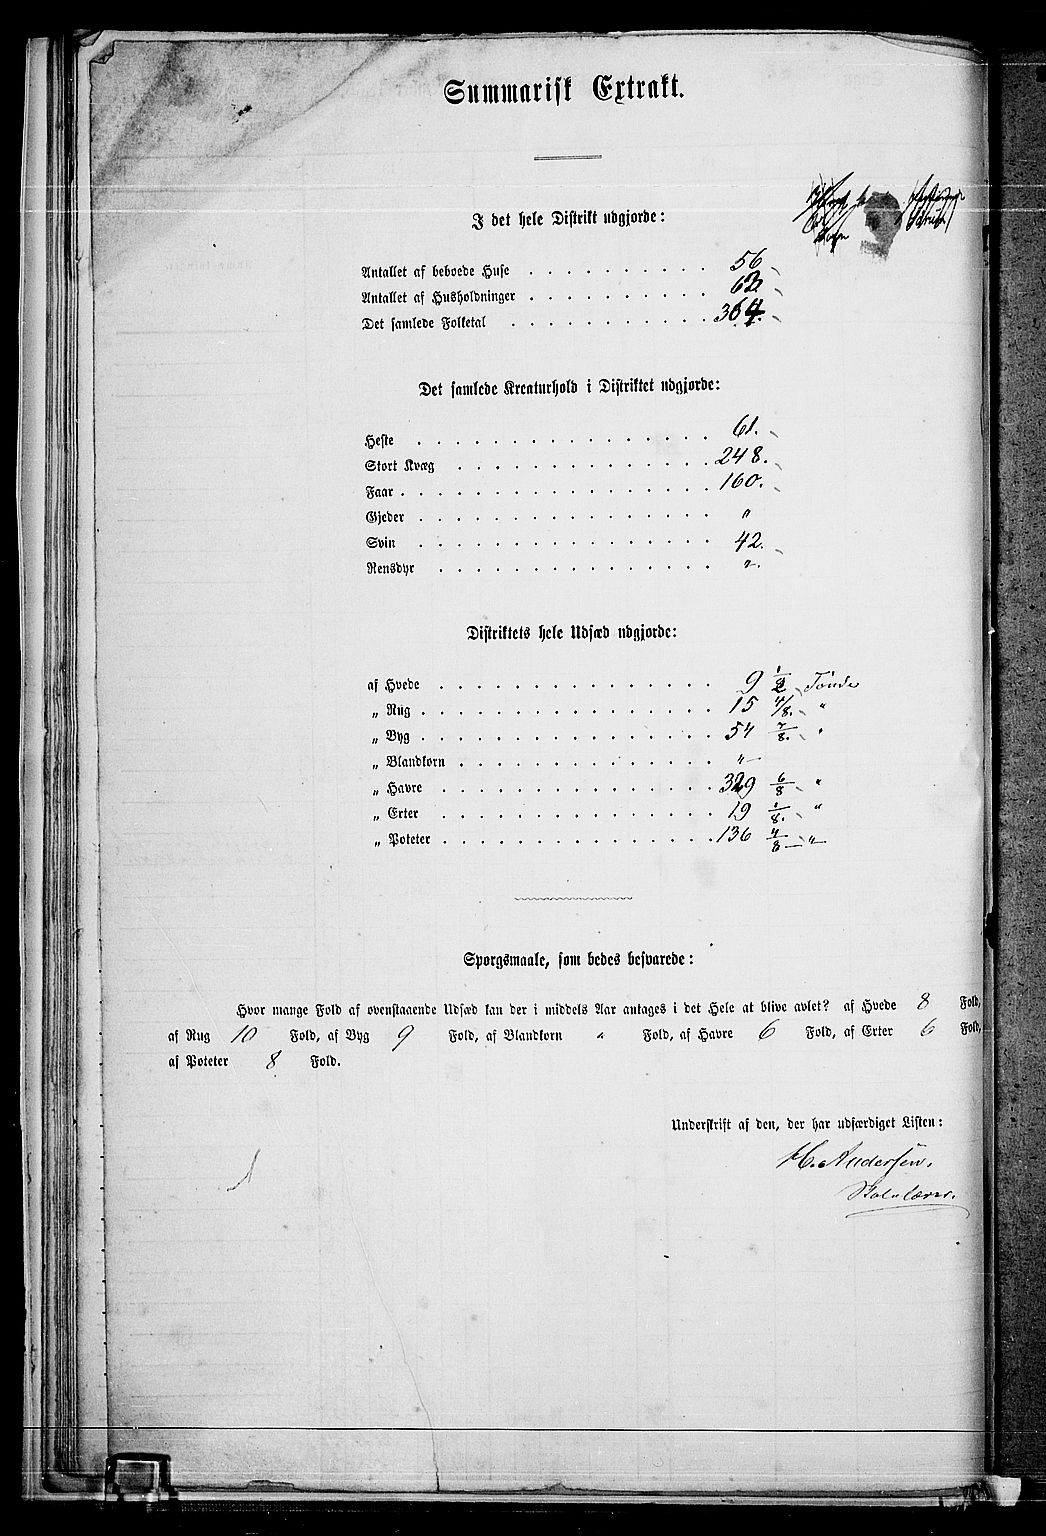 Summarisk Extrakt.
I det hele Distrikt udgjorde:
Antallet af beboede Huse . . . . . . . . . . 56
Antallet af Husholdninger . . . . . . . . . . 62.
Det samlede Folketal . . . . . . . . . . . 364.
Det samlede Kreaturhold i Distriktet udgjorde:
Heste . . . . . . . . . . . . . . . . 61.
Stort Kvæg . . . . . . . . . . . . . . 248.
Faar . . . . . . . . . . . . . . . . . 160.
Gjeder . . . . . . . . . . . . . . . . "
Svin . . . . . . . . . . . . . . . . 42.
Rensdyr . . . . . . . . . . . . . . . ".
Distriktets hele Udsæd udgjorde:
af Hvede . . . . . . . . . . . . . . . 9 1/8 Tönde
„ Rug . . . . . . . . . . . . . . . . 15 4/8. "
„ Byg . . . . . . . . . . . . . . . . 54 7/8. "
„ Blandkorn . . . . . . . . . . . . . . "
„ Havre . . . . . . . . . . . . . . . 329 6/8 "
„ Erter . . . . . . . . . . . . . . . 19 1/8. "
„ Poteter . . . . . . . . . . . . . . . 136 4/8 "
Spørgsmaale, som bedes besvarede:
Hvor mange Fold af ovenstaaende Udsæd kan der i middels Aar antages i det Hele at blive avlet? af Hvede 8 Fold,
af Rug 10 Fold, af Byg 9 Fold, af Blandkorn " Fold, af Havre 6 Fold, af Erter 6 Fold,
af Poteter 8 Fold.
Underskrift af den, der har udfærdiget Listen:
H. Andersen,
Skolelærer.